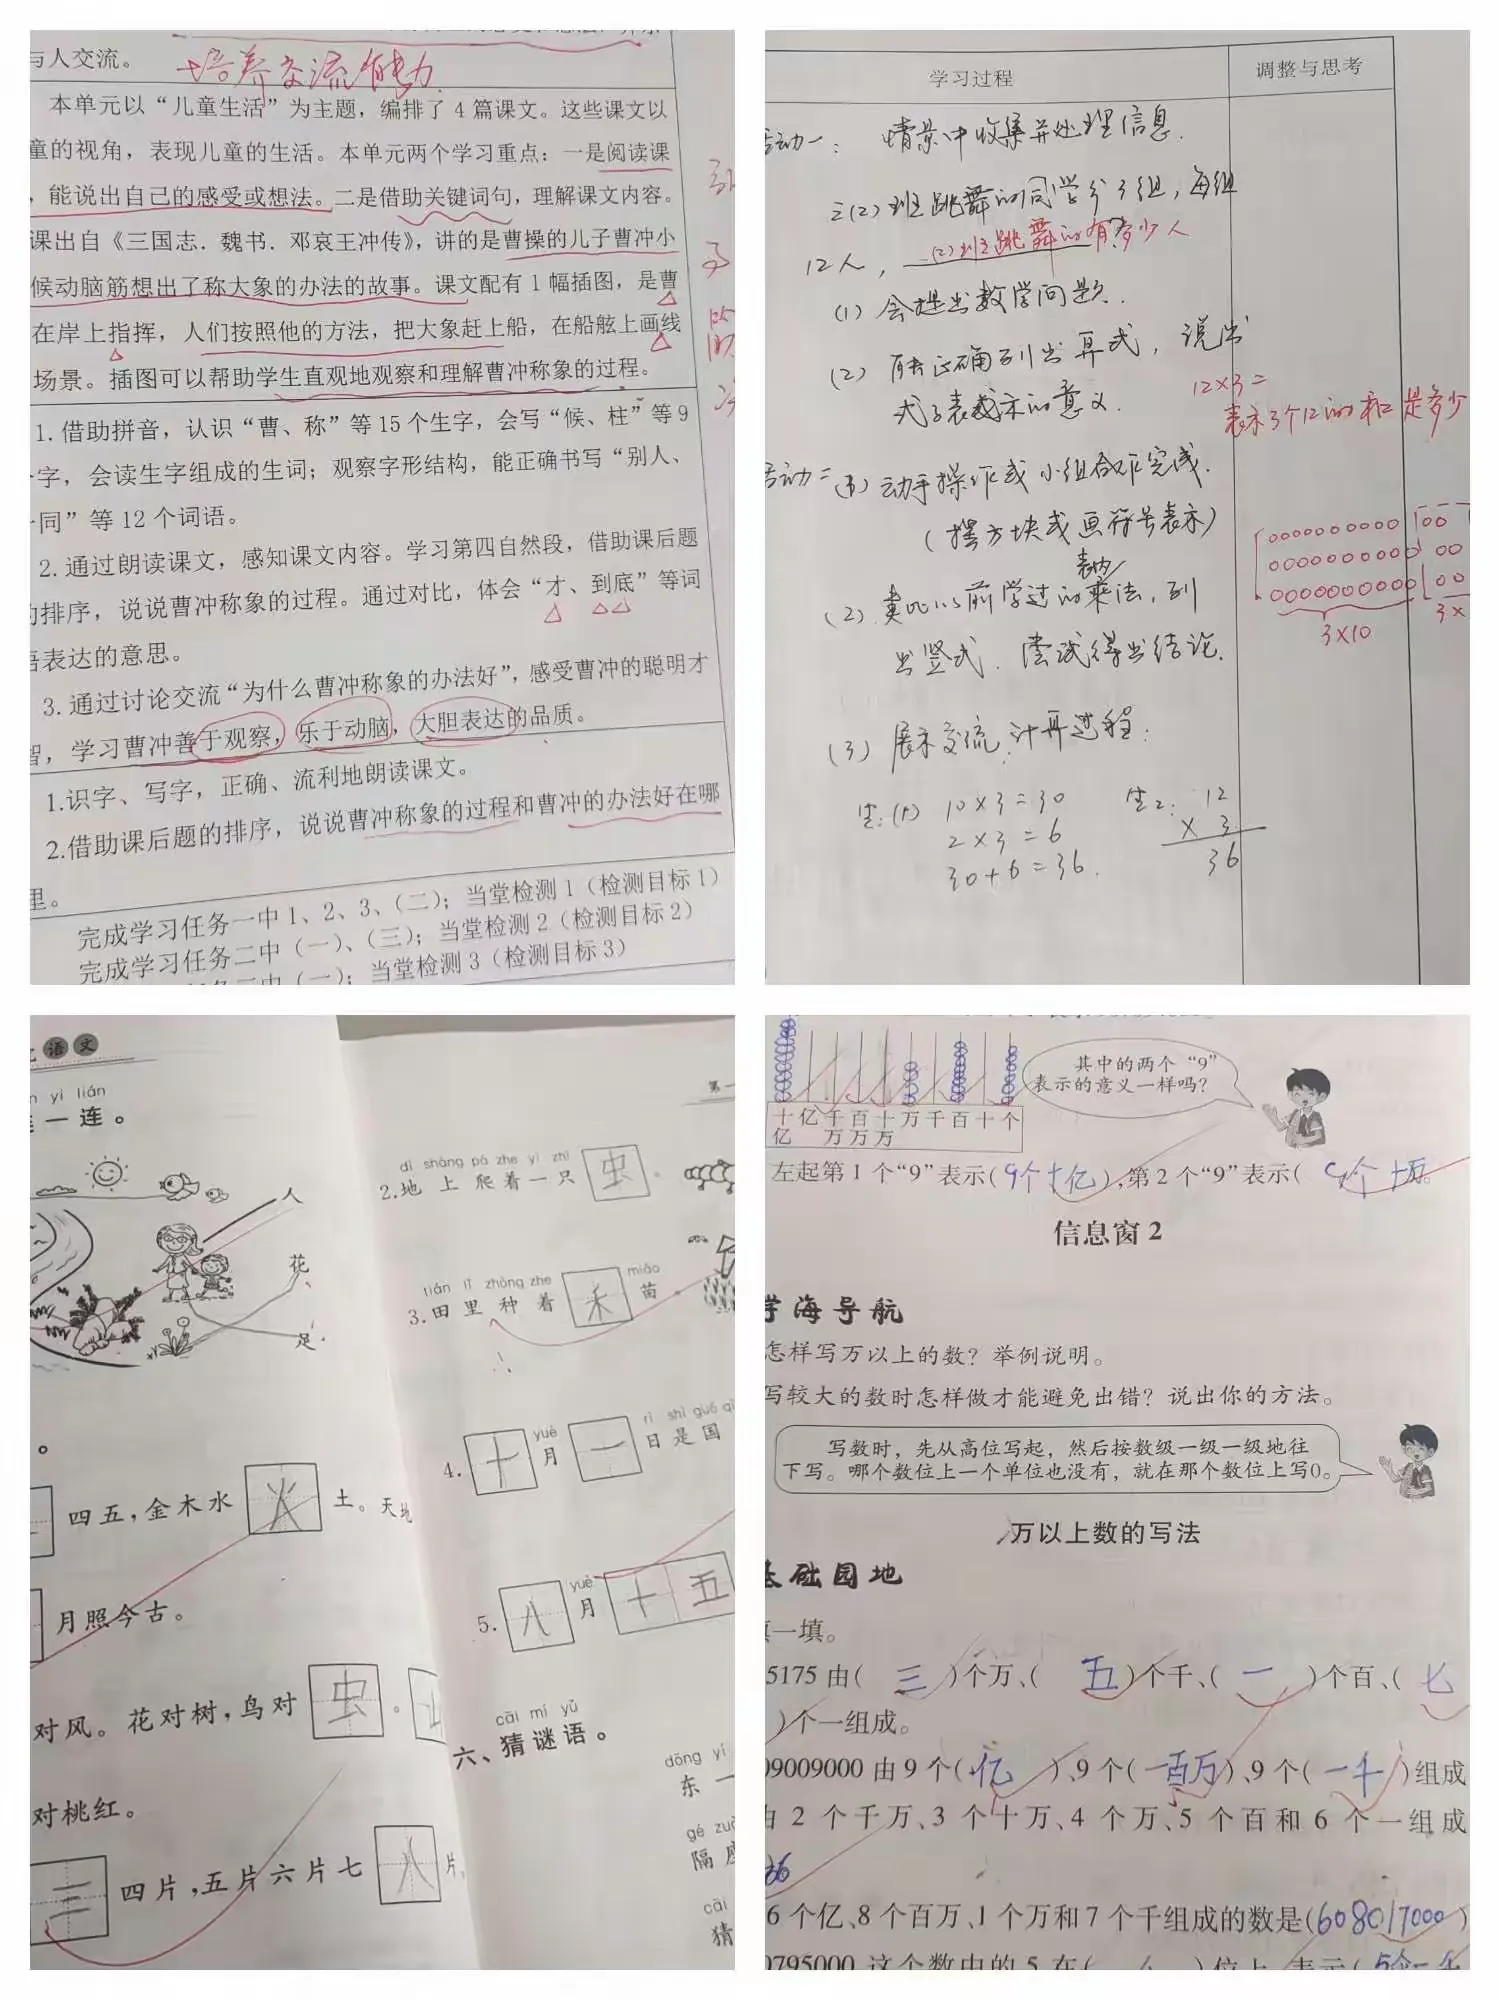 与人交流。
培养交流能力
本单元以“儿童生活”为主题，编排了 4 篇课文。这些课文以
童的视角，表现儿童的生活。本单元两个学习重点：一是阅读课
，能说出自己的感受或想法。二是借助关键词句，理解课文内容。
课出自《三国志．魏书．邓哀王冲传》，讲的是曹操的儿子曹冲小
候动脑筋想出了称大象的办法的故事。课文配有 1 幅插图，是曹
在岸上指挥，人们按照他的方法，把大象赶上船，在船舷上画线
场景。插图可以帮助学生直观地观察和理解曹冲称象的过程。
1.借助拼音，认识“曹、称”等 15 个生字，会写“候、柱”等 9
字，会读生字组成的生词；观察字形结构，能正确书写“别人、
一同”等 12 个词语。
2.通过朗读课文，感知课文内容。学习第四自然段，借助课后题
的排序，说说曹冲称象的过程。通过对比，体会“才、到底”等词
语表达的意思。
3.通过讨论交流“为什么曹冲称象的办法好”，感受曹冲的聪明才
智，学习曹冲善于观察，乐于动脑，大胆表达的品质。
1.识字、写字，正确、流利地朗读课文。
2.借助课后题的排序，说说曹冲称象的过程和曹冲的办法好在哪
里。
完成学习任务一中 1、2、3、（二）；当堂检测 1（检测目标 1）
完成学习任务二中（一）、（三）；当堂检测 2（检测目标 2）
中（一）；当堂检测 3（检测目标 3）
学习过程
调整与思考
活动一： 情景中收集并处理信息.
三(2)班跳舞的同学分了组，每组
12人，
(2)班跳舞的有多少人
(1) 会提出数学问题.
(2) 能正确列出算式，说出
式子表示的意义.
12×3=
表示3个12的和是多少
活动二 动手操作或小组合作完成.
(摆方块或画符号表示)
表内
(2) 类比以前学过的乘法，列
出竖式，尝试得出结论.
3×10
3×
(3) 展示交流，计算过程：
生:(1) 10×3=30
2×3=6
30+6=36.
生2: 12
× 3
36
语文
yi lián
一连。
人
花
足
四五，金木水 火 土。天地
月照今古。
对风。花对树，鸟对 虫 。
对桃红。
三 四片，五片六片七 八 片
第一
dì shàng pá zhe yì zhī
2.地上爬着一只 虫 。
tián lǐ zhòng zhe miáo
3.田里种着 禾 苗。
yuè rì shì guó
4. 十 月 一 日是国
yuè
5. 八 月 十五
cāi mí yǔ
六、猜谜语。
dōng yì
东一
gé
隔
cāi
猜
其中的两个“9”
表示的意义一样吗？
十亿 亿 千万 百万 十万 万 千 百 十 个
左起第 1 个“9”表示( 9个十亿 )，第 2 个“9”表示( 9个十万
信息窗 2
学海导航
怎样写万以上的数？举例说明。
写较大的数时怎样做才能避免出错？说出你的方法。
写数时，先从高位写起，然后按数级一级一级地往
下写。哪个数位上一个单位也没有，就在那个数位上写0。
万以上数的写法
基础园地
填一填。
5175 由( 三 )个万、( 五 )个千、( 一 )个百、( 七
)个一组成。
09009000 由 9 个( 亿 )、9 个( 百万 )、9 个( 一千 )组成
由 2 个千万、3 个十万、4 个万、5 个百和 6 个一组成
6 个亿、8 个百万、1 个万和 7 个千组成的数是( 608017000 )
0795000 这个数中的 5 在( )位上，表示( 5个一千